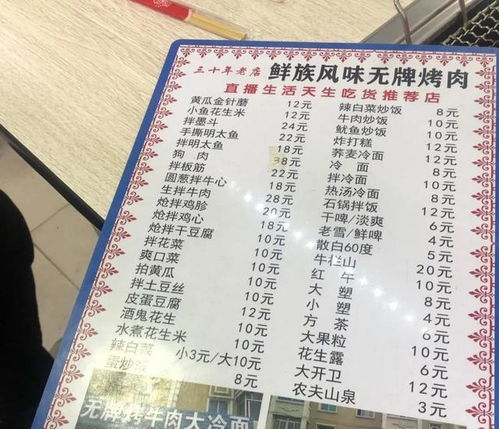 三十年老店 鲜族风味无牌烤肉
直播生活天生吃货推荐店
黄瓜金针蘑 12元
小鱼花生米 12元
拌墨斗 24元
手撕明太鱼 22元
拌明太鱼 18元
狗肉 38元
拌板筋 22元
圆葱拌牛心 18元
生拌牛肉 28元
炝拌鸡胗 20元
炝拌鸡心 18元
炝拌干豆腐 10元
拌花菜 10元
爽口菜 10元
拍黄瓜 10元
拌土豆丝 10元
皮蛋豆腐 10元
酒鬼花生 12元
水煮花生米 10元
辣白菜 小3元/大10元
蛋炒饭 8元
辣白菜炒饭 8元
牛肉炒饭 10元
鱿鱼炒饭 10元
炸打糕 12元
荞麦冷面 10元
冷面 8元
拌冷面 10元
热汤冷面 10元
石锅拌饭 12元
干啤/淡爽 6元
老雪/鲜啤 4元
散白60度 5元
牛栏山 20元
红午 10元
大塑 8元
小塑 4元
方茶 6元
大果粒 10元
花生露 6元
大开卫 12元
农夫山泉 3元
无牌烤牛肉大冷面